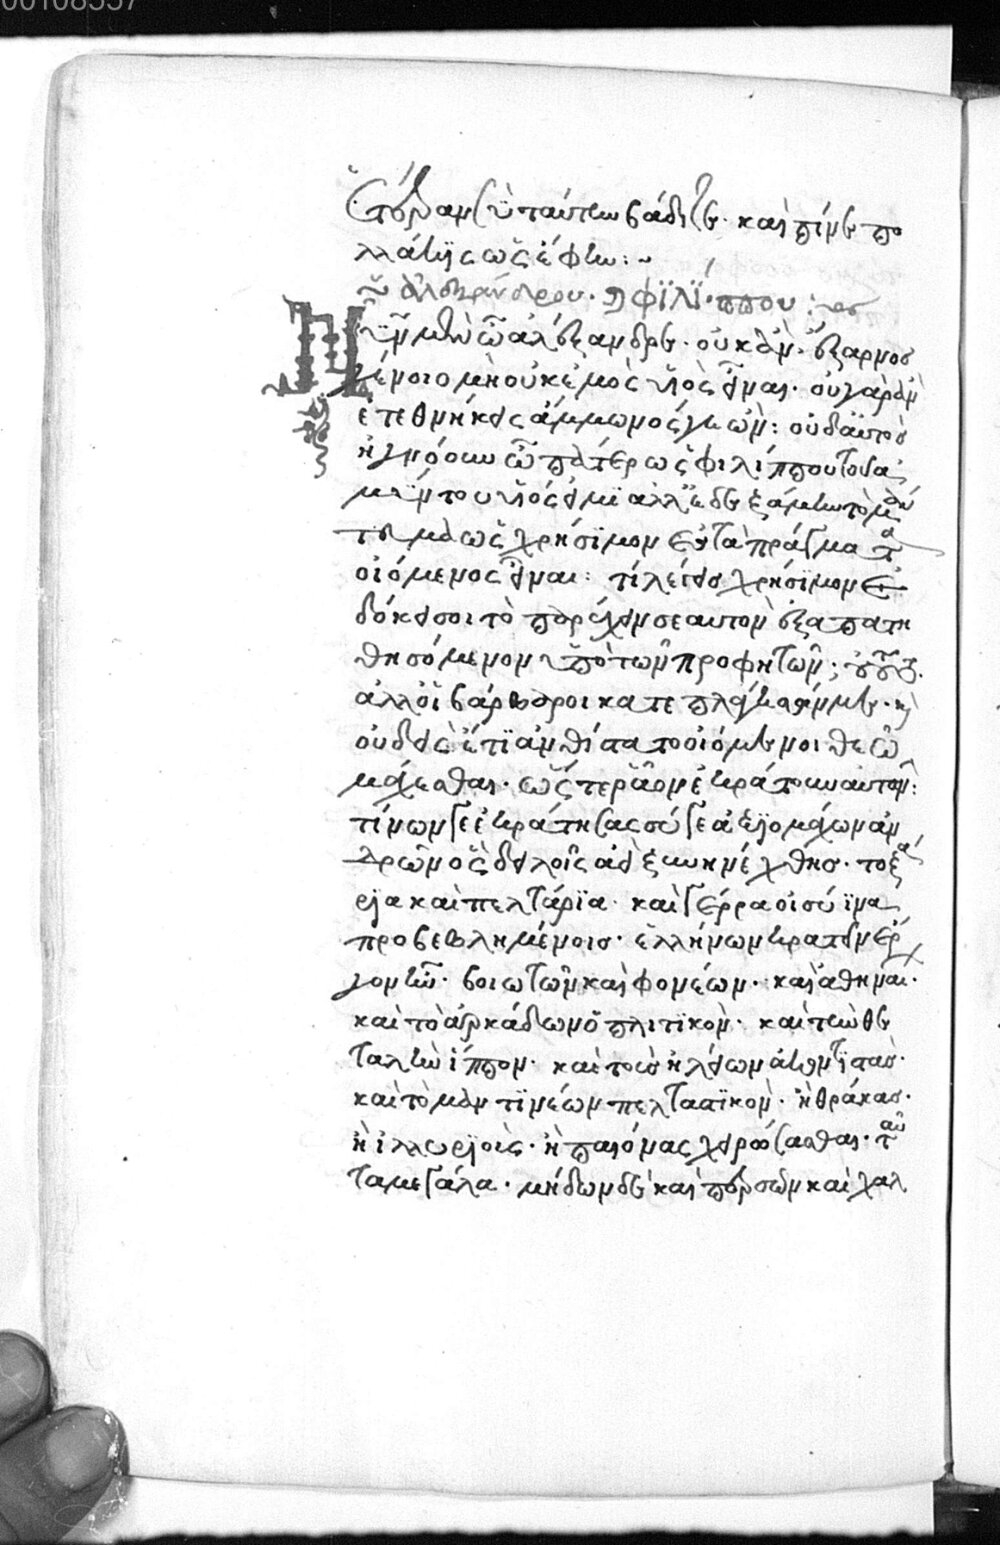 ἑτέραν σὺ ταύτην βάδιζε· καὶ πίνε πο
λλάκις ὡς ἔφην:~
ἀλεξάνδρου· καὶ φιλίππου:
Νῦν μὲν ὦ ἀλέξανδρε· οὐκ ἂν ἔξαρνος
γένοιο μὴ οὐκ ἐμὸς υἱὸς εἶναι· οὐ γὰρ ἂν
ἐτεθνήκεις ἄμμωνός γε ὤν: οὐδ' αὐτὸς
ἠγνόουν ὦ πάτερ ὡς φιλίππου τοῦ ἀ
μύντου υἱός εἰμι ἀλλ' ἐδεξάμην τὸ μάν
τευμα ὡς χρήσιμον ἐς τὰ πράγματα
οἰόμενος εἶναι: τί λέγεις χρήσιμον ἐ
δόκει σοι τὸ παρέχειν σεαυτὸν ἐξαπατη
θησόμενον ὑπὸ τῶν προφητῶν; οὐ τοῦτο.
ἀλλ' οἱ βάρβαροι κατεπλάγησάν με· καὶ
οὐδεὶς ἔτι ἀνθίστατο οἰόμενοι θεῶ
μάχεσθαι· ὥστε ῥᾶον ἐκράτουν αὐτῶν:
τίνων δὲ ἐκράτησας σύ γε ἀξιομάχων ἀν
δρῶν ὃς δειλοῖς ἀεὶ ξυνηνέχθης· τοξά
ρια καὶ πελτάρια· καὶ γέρρα οἰσύϊνα
προβεβλημένοις· ἑλλήνων κρατεῖν ἔρ
γον ἦν· βοιωτῶν καὶ φοκέων· καὶ ἀθηναι·
καὶ τὸ ἀρκάδων ὁπλιτικὸν· καὶ τὴν θε
ταλὴν ἵππον· καὶ τοὺς ἠλείων ἀκοντιστὰς·
καὶ τὸ μαντινέων πελταστικὸν· ἢ θράκας·
ἢ ἰλλυριοὺς· ἢ παίονας χειρώσασθαι· ταῦ
τα μεγάλα· μήδων δὲ καὶ περσῶν καὶ χαλ